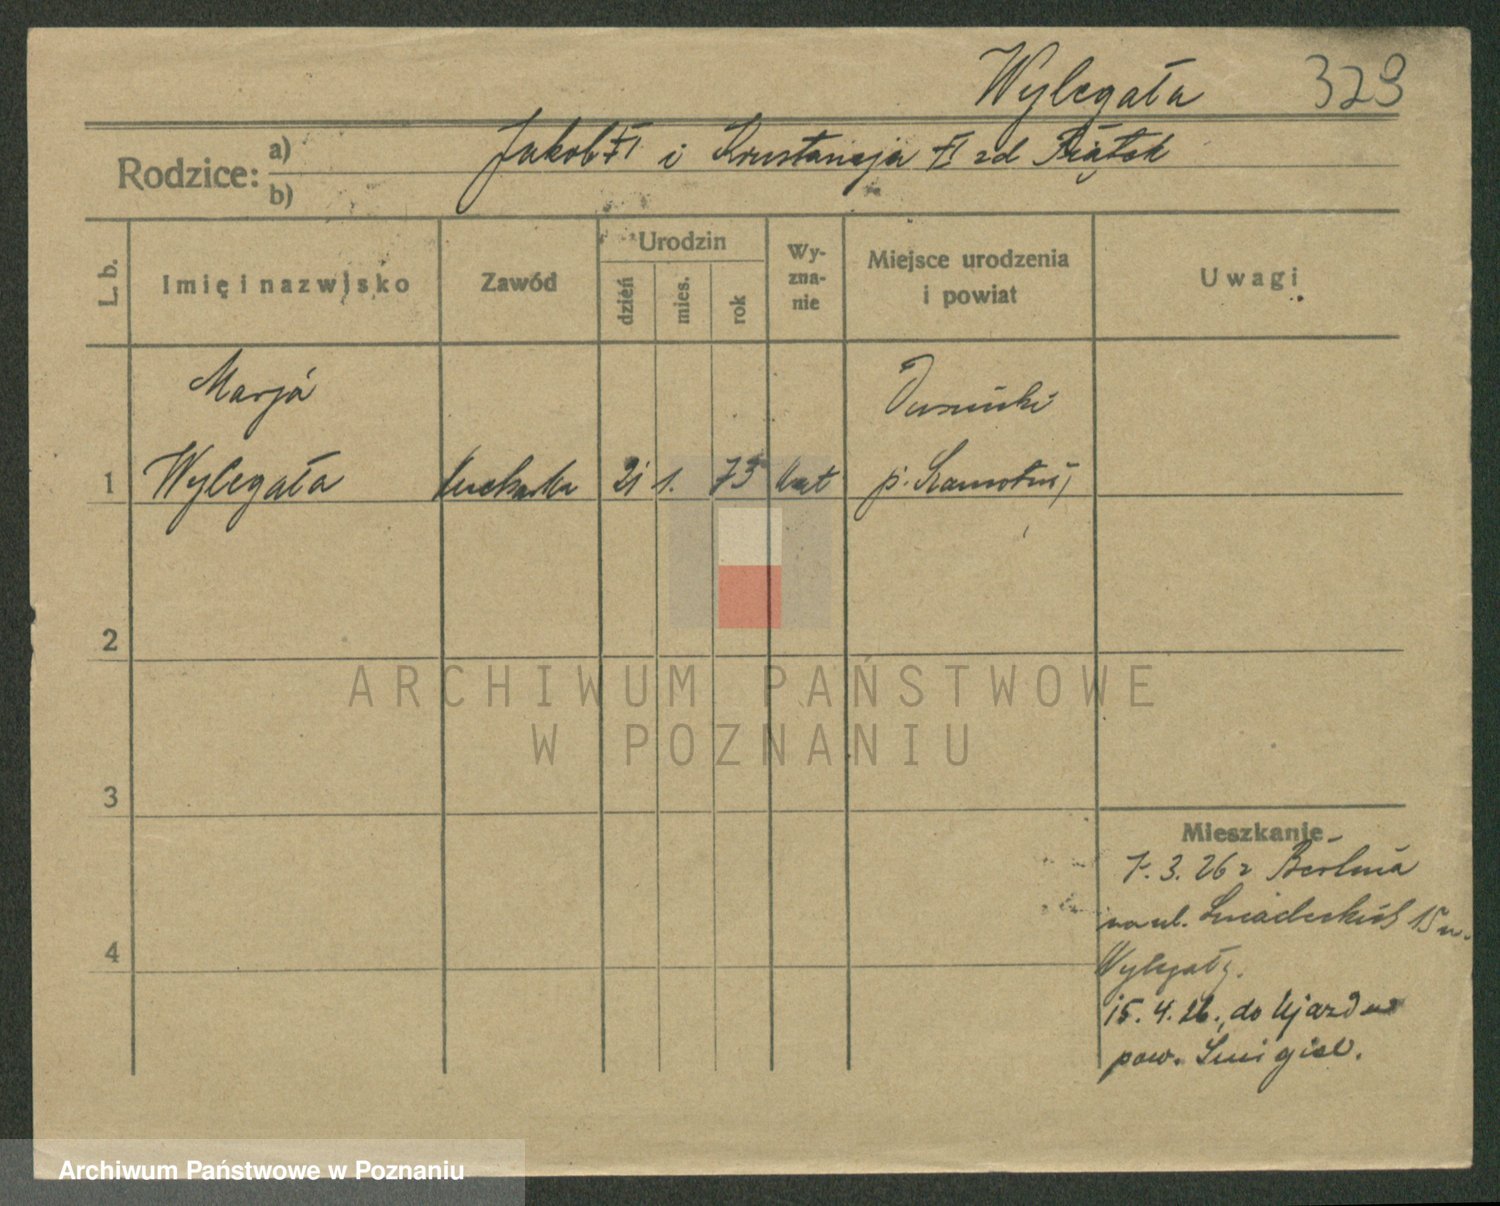 Wylegała 329
Rodzice: a) Jakob †† i Konstancja †† zd Piątek
b)
L. b. Imię i nazwisko Zawód Urodzin dzień mies. rok Wy-zna-nie Miejsce urodzenia i powiat Uwagi
Marja
1 Wylegała kucharka 21 1. 73 kat p. Szamotuły
2
3
4
Mieszkanie
7. 3. 26 z Berlina
na ul. Śniadeckich 15 u.
Wylegały.
15. 4. 26. do Ujazdu
pow. Śmigiel.
ARCHIWUM PAŃSTWOWE
W POZNANIU
Archiwum Państwowe w Poznaniu